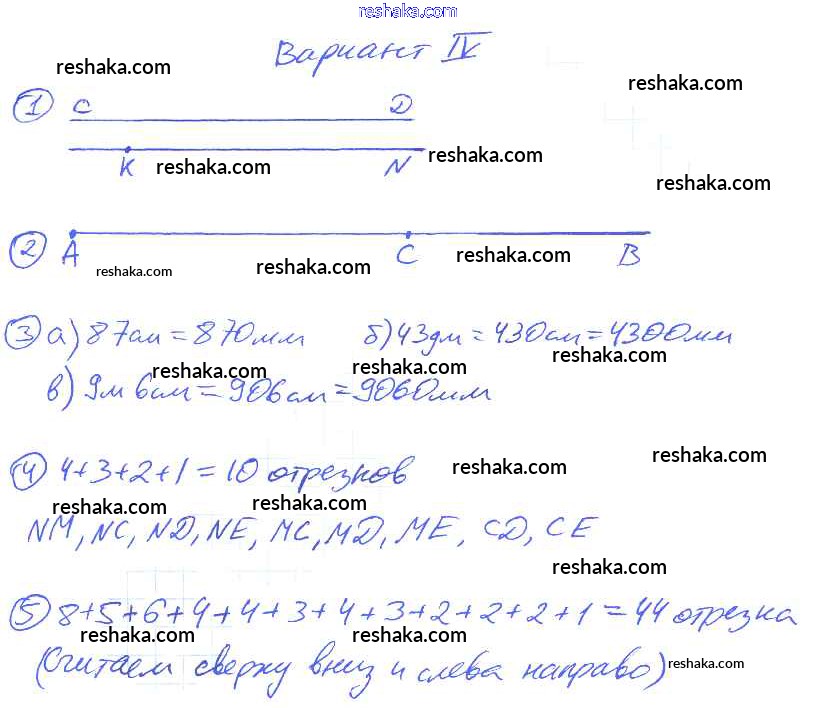 reshaka.com
Вариант IV
reshaka.com
reshaka.com
1 C D
K reshaka.com N reshaka.com
reshaka.com
2 A C B
reshaka.com reshaka.com reshaka.com
3 а) 87см = 870мм б) 43дм = 430см = 4300мм
reshaka.com reshaka.com reshaka.com
в) 9м 6см = 906см = 9060мм
4 4+3+2+1 = 10 отрезков
reshaka.com reshaka.com
reshaka.com reshaka.com
NM, NC, ND, NE, MC, MD, ME, CD, CE
reshaka.com
5 8+5+6+4+4+3+4+3+2+2+2+1 = 44 отрезка
reshaka.com reshaka.com
(Считаем сверху вниз и слева направо) reshaka.com